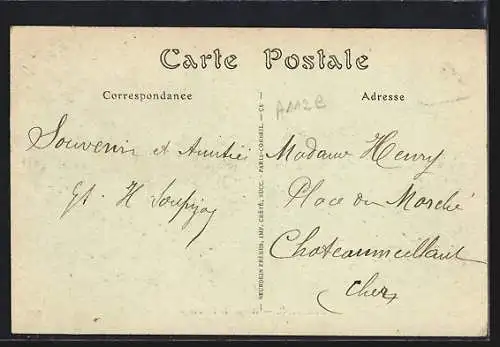 Carte Postale
Correspondance
Adresse
A112E
Souvenir et Amitiés
H
Madame Henry
Place du Marché
Chateaumeillant
Cher
NEURDEIN FRÈRES, IMP. CRÉTÉ, SUCC. - PARIS-CORBEIL.